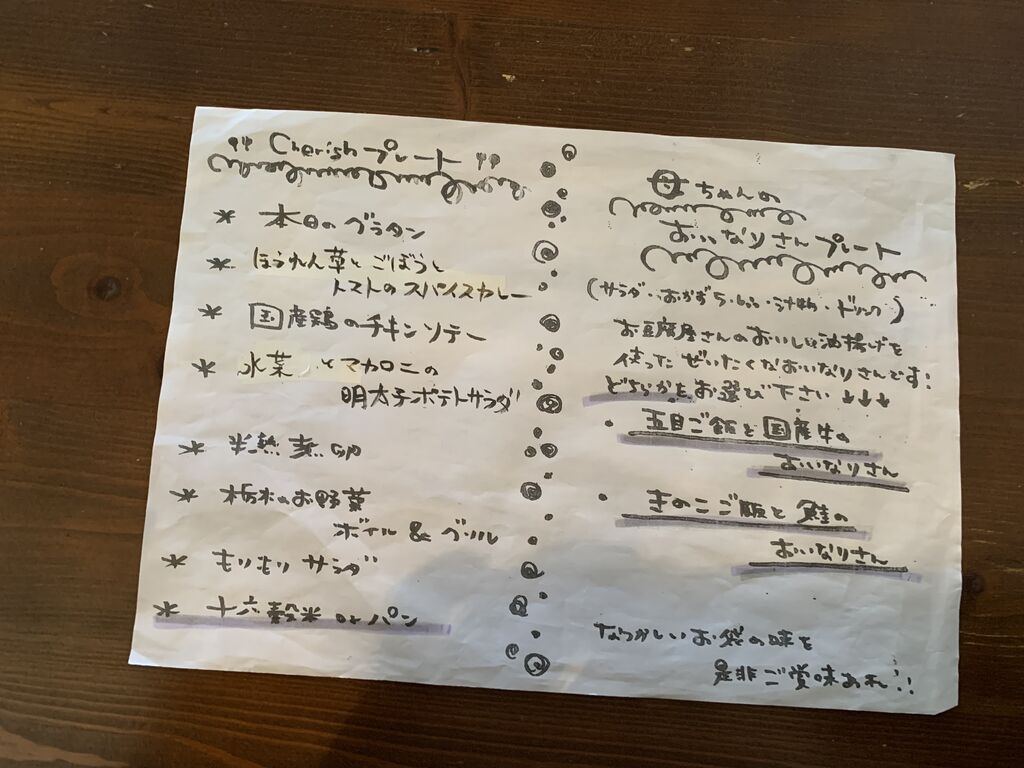 Cherish プレート
* 本日のグラタン
* ほうれん草とごぼうと
トマトのスパイスカレー
* 国産鶏のチキンソテー
* 水菜とマカロニの
明太子ポテトサラダ
* 半熟煮卵
* 栃木のお野菜
ボイル & グリル
* もりもり サラダ
* 十六穀米 or パン
母ちゃんの
おいなりさんプレート
(サラダ・おかず5・・汁物・ドリンク)
お豆腐屋さんのおいしい油揚げを
使った ぜいたくなおいなりさんです!
どちらかをお選び下さい ↓↓↓
・五目ご飯と国産牛の
おいなりさん
・きのこご飯と鮭の
おいなりさん
なつかしいお袋の味を
是非ご賞味あれ!!